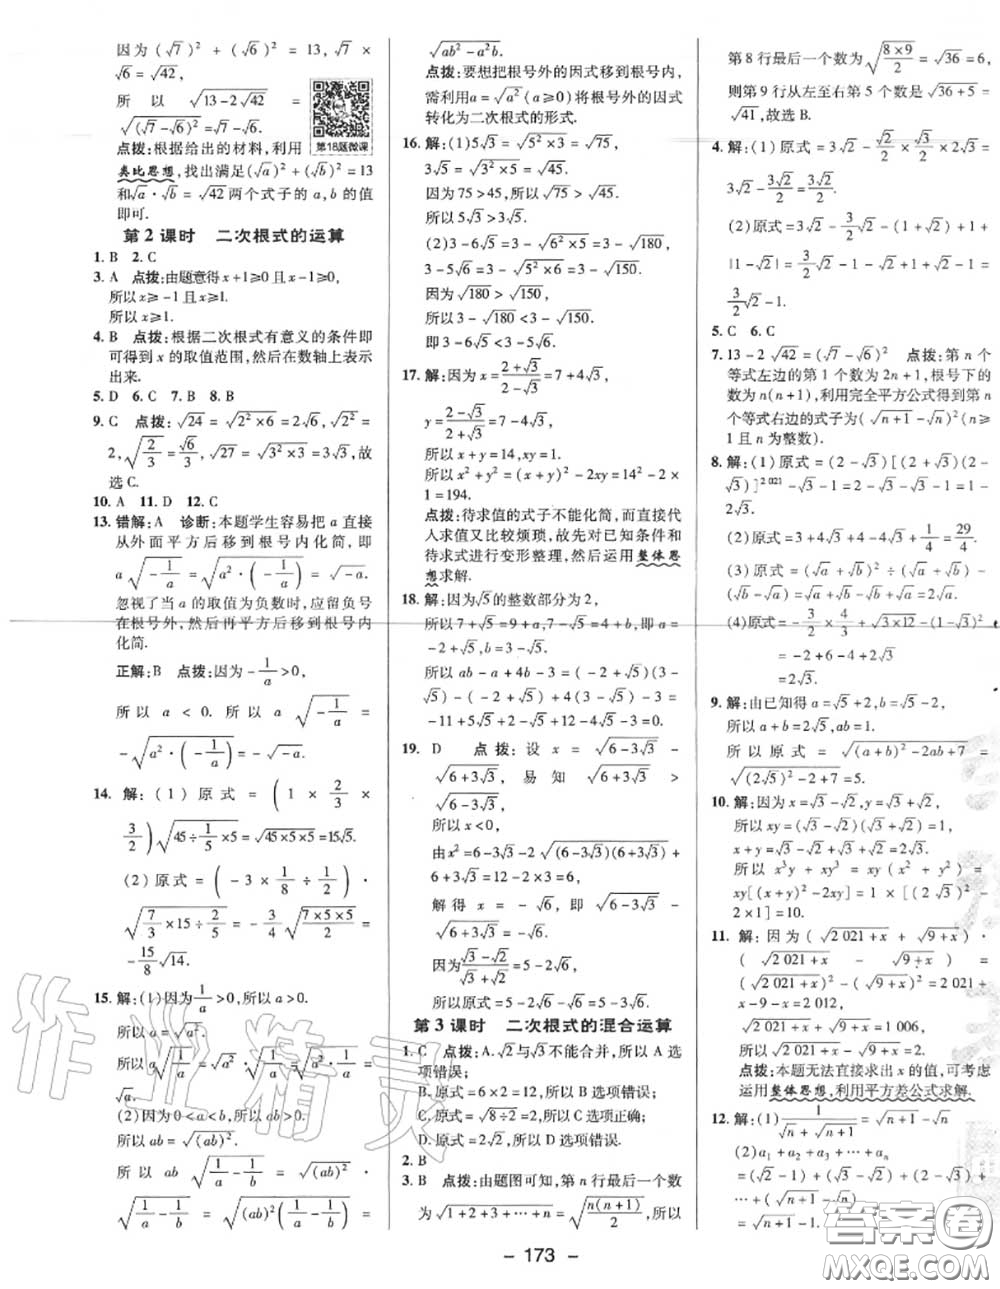 因为(√7)²+(√6)²=13,√7×
√6=√42,
所以 √(13-2√42) =
√((√7-√6)²)=√7-√6.
第18题微课
点拨:根据给出的材料,利用
类比思想,找出满足(√a)²+(√b)²=13
和√a·√b=√42两个式子的a,b的值
即可.
第2课时 二次根式的运算
1. B 2. C
3. A 点拨:由题意得x+1≥0且x-1≥0,
所以x≥-1且x≥1.
所以x≥1.
4. B 点拨:根据二次根式有意义的条件即
可得到x的取值范围,然后在数轴上表示
出来.
5. D 6. C 7. B 8. B
9. C 点拨:√24=√(2²×6)=2√6,√(2²)=
2,√(2/3)=√6/3,√27=√(3²×3)=3√3,故
选C.
10. A 11. D 12. C
13. 错解:A 诊断:本题学生容易把a直接
从外面平方后移到根号内化简,即
a√(-1/a)=√(a²·(-1/a))=√(-a).
忽视了当a的取值为负数时,应留负号
在根号外,然后再平方后移到根号内
化简.
正解:B 点拨:因为-1/a>0,
所以 a<0. 所以 a√(-1/a) =
-√(a²·(-1/a))=-√(-a).
14. 解:(1)原式=(1×2/3×
3/2)√(45÷1/5×5)=√(45×5×5)=15√5.
(2)原式=(-3×1/8÷1/2)×
√(7/3×15÷2/5)=-3/4√((7×5×5)/2)=
-15/8√14.
15. 解:(1)因为1/a>0,所以a>0.
所以a=√(a²). 所以a√(1/a)=√(a²)·√(1/a)=√(a²·1/a)=
√a.
(2)因为0<a<b,所以ab>0.
所以ab=√((ab)²).
所以 ab√(1/a-1/b)=√((ab)²)·
√(1/a-1/b)=√((ab)²(1/a-1/b))=
√(ab²-a²b).
点拨:要想把根号外的因式移到根号内,
需利用a=√(a²)(a≥0)将根号外的因式
转化为二次根式的形式.
16. 解:(1)5√3=√(5²×3)=√75,
3√5=√(3²×5)=√45.
因为75>45,所以√75>√45.
所以5√3>3√5.
(2)3-6√5=3-√(6²×5)=3-√180,
3-5√6=3-√(5²×6)=3-√150.
因为√180>√150,
所以3-√180<3-√150.
即3-6√5<3-5√6.
17. 解:因为x=(2+√3)/(2-√3)=7+4√3,
y=(2-√3)/(2+√3)=7-4√3,
所以x+y=14,xy=1.
所以x²+y²=(x+y)²-2xy=14²-2×
1=194.
点拨:待求值的式子不能化简,而直接代
入求值又比较烦琐,故先对已知条件和
待求式进行变形整理,然后运用整体思
想求解.
18. 解:因为√5的整数部分为2,
所以7+√5=9+a,7-√5=4+b,即a=
-2+√5,b=3-√5.
所以ab-a+4b-3=(-2+√5)(3-
√5)-(-2+√5)+4(3-√5)-3=
-11+5√5+2-√5+12-4√5-3=0.
19. D 点拨:设 x=√(6-3√3)-
√(6+3√3), 易知 √(6-3√3)<√(6+3√3),
所以x<0,
由x²=6-3√3-2√((6-3√3)(6+3√3))+
6+3√3=12-2×3=6,
解得 x=-√6,即 √(6-3√3)-
√(6+3√3)=-√6.
因为(√3-√2)/(√3+√2)=5-2√6,
所以原式=5-2√6-√6=5-3√6.
第3课时 二次根式的混合运算
1. C 点拨:A.√2与√3不能合并,所以A选
项错误;
B. 原式=6×2=12,所以B选项错误;
C. 原式=√(8÷2)=2,所以C选项正确;
D. 原式=2√2,所以D选项错误.
2. B
3. B 点拨:由题图可知,第n行最后一个数
为√(1+2+3+…+n)=√(n(n+1)/2),所以
第8行最后一个数为√((8×9)/2)=√36=6,
则第9行从左至右第5个数是√(36+5)=
√41,故选B.
4. 解:(1)原式=3√2-√2/2×√3/2×2√3=
3√2-3√2/2=3√2/2.
(2)原式=3√2-√2/2+√2×(-1)+
|1-√2|=3√2-√2/2-√2+√2-1=
3/2√2-1.
5. C 6. C
7. 13-2√42=(√7-√6)² 点拨:第n个
等式左边的第1个数为2n+1,根号下的
数为n(n+1),利用完全平方公式得到第n
个等式右边的式子为(√(n+1)-√n)²(n≥
1且n为整数).
8. 解:(1)原式=(2-√3)[(2+√3)(2-
√3)]^2 021-√3=2-√3-√3=2-
2√3.
(2)原式=3+4√3-4√3+4+1/4=29/4.
(3)原式=√a(√a+√b)÷(√a+√b)-
(√b-√a)=√a-√b+√a=2√a-√b.
(4)原式=-2/3×3/4×4+√(3×12)-(1-√3)²
=-2+6-4+2√3
=2√3.
9. 解:由已知得a=√5+2,b=√5-2,
所以a+b=2√5,ab=1.
所以原式=√((a+b)²-2ab+7)=
√((2√5)²-2+7)=5.
10. 解:因为x=√3-√2,y=√3+√2,
所以xy=(√3-√2)(√3+√2)=1,
x+y=√3-√2+√3+√2=2√3.
所以 x³y+xy³=xy(x²+y²)=
xy[(x+y)²-2xy]=1×[(2√3)²-
2×1]=10.
11. 解:因为(√(2 021+x)+√(9+x))·
(√(2 021+x)-√(9+x))
=(√(2 021+x))²-(√(9+x))²=2 021+
x-9-x=2 012,
√(2 021+x)+√(9+x)=1 006,
所以√(2 021+x)-√(9+x)=2.
点拨:本题无法直接求出x的值,可考虑
运用整体思想,利用平方差公式求解.
12. 解:(1)1/(√n+√(n+1))=√(n+1)-√n
(2)a₁+a₂+a₃+…+aₙ
=(√2-1)+(√3-√2)+(√4-√3)+
…+(√(n+1)-√n)
=√(n+1)-1.
- 173 -
作业精灵
答案圈
MXQE.COM